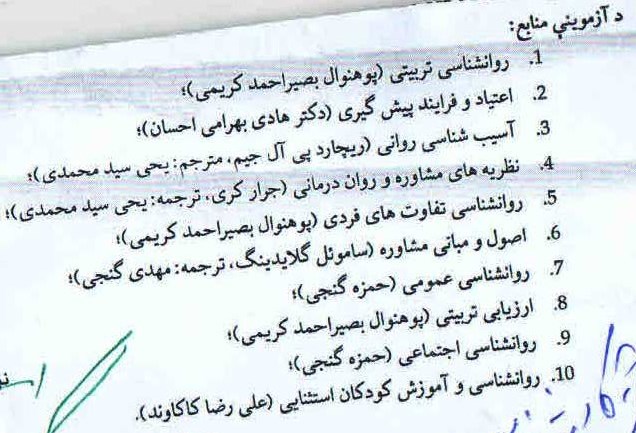 د آزموینې منابع:
1. روانشناسی تربیتی (پوهنوال بصیراحمد کریمی)؛
2. اعتیاد و فرایند پیش گیری (دکتر هادی بهرامی احسان)؛
3. آسیب شناسی روانی (ریچارد پی آل جیم، مترجم: یحی سید محمدی)؛
4. نظریه های مشاوره و روان درمانی (جرار کری، ترجمه: یحی سید محمدی)؛
5. روانشناسی تفاوت های فردی (پوهنوال بصیراحمد کریمی)؛
6. اصول و مبانی مشاوره (ساموئل گلایدینگ، ترجمه: مهدی گنجی)؛
7. روانشناسی عمومی (حمزه گنجی)؛
8. ارزیابی تربیتی (پوهنوال بصیراحمد کریمی)؛
9. روانشناسی اجتماعی (حمزه گنجی)؛
10. روانشناسی و آموزش کودکان استثنایی (علی رضا کاکاوند).